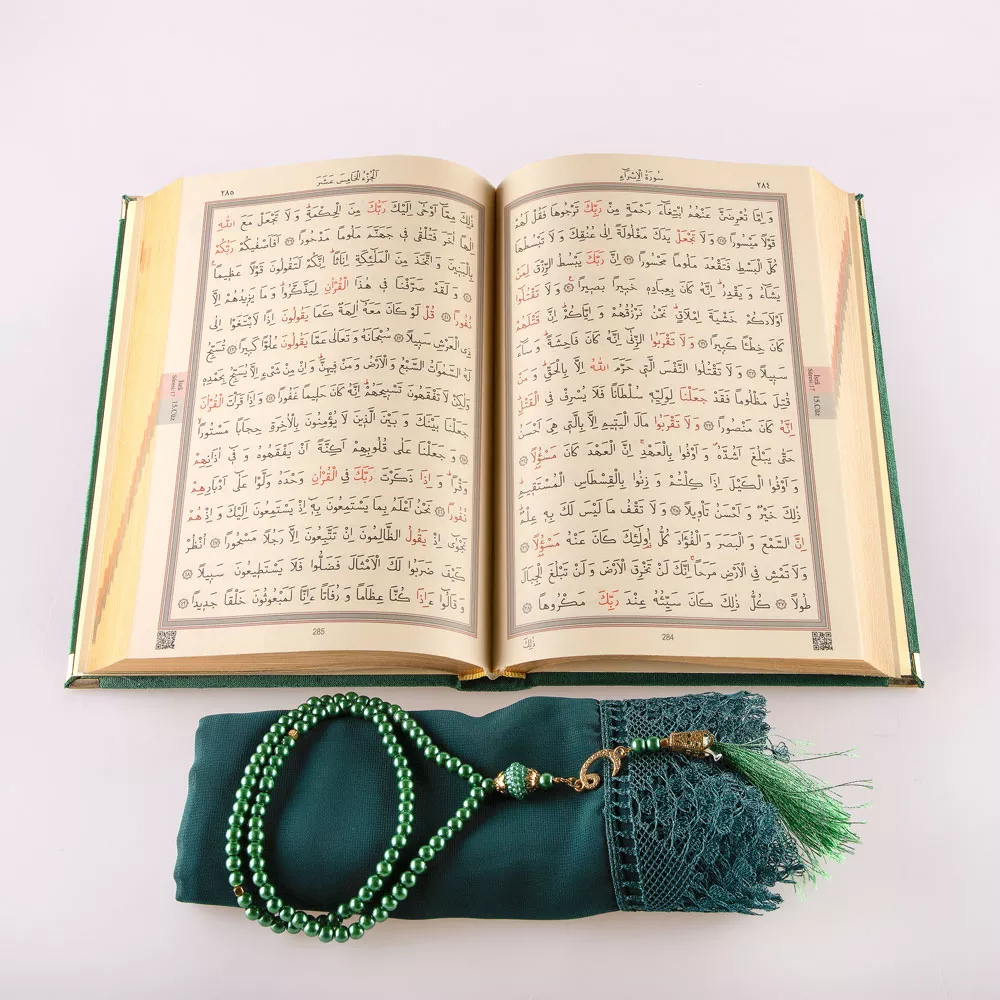 سُورَةُ الْاِسْرَٓاءِ
٢٨٤
وَ اِمَّا تُعْرِضَنَّ عَنْهُمُ ابْتِغَٓاءَ رَحْمَةٍ مِنْ رَبِّكَ تَرْجُوهَا فَقُلْ لَهُمْ
قَوْلًا مَيْسُورًا ﴿٢٨﴾ وَ لَا تَجْعَلْ يَدَكَ مَغْلُولَةً اِلٰى عُنُقِكَ وَ لَا تَبْسُطْهَا
كُلَّ الْبَسْطِ فَتَقْعُدَ مَلُومًا مَحْسُورًا ﴿٢٩﴾ اِنَّ رَبَّكَ يَبْسُطُ الرِّزْقَ لِمَنْ
يَشَٓاءُ وَ يَقْدِرُ اِنَّهُ كَانَ بِعِبَادِهِ خَبِيرًا بَصِيرًا ﴿٣٠﴾ وَ لَا تَقْتُلُٓوا
اَوْلَادَكُمْ خَشْيَةَ اِمْلَاقٍ نَحْنُ نَرْزُقُهُمْ وَ اِيَّاكُمْ اِنَّ قَتْلَهُمْ
كَانَ خِطْـًٔا كَبِيرًا ﴿٣١﴾ وَ لَا تَقْرَبُوا الزِّنٰٓى اِنَّهُ كَانَ فَاحِشَةً وَ سَٓاءَ
سَبِيلًا ﴿٣٢﴾ وَ لَا تَقْتُلُوا النَّفْسَ الَّتِى حَرَّمَ اللّٰهُ اِلَّا بِالْحَقِّ وَ مَنْ
قُتِلَ مَظْلُومًا فَقَدْ جَعَلْنَا لِوَلِيِّهِ سُلْطَانًا فَلَا يُسْرِفْ فِى الْقَتْلِ
اِنَّهُ كَانَ مَنْصُورًا ﴿٣٣﴾ وَ لَا تَقْرَبُوا مَالَ الْيَتِيمِ اِلَّا بِالَّتِى هِىَ اَحْسَنُ
حَتّٰى يَبْلُغَ اَشُدَّهُ وَ اَوْفُوا بِالْعَهْدِ اِنَّ الْعَهْدَ كَانَ مَسْؤُلًا ﴿٣٤﴾
وَ اَوْفُوا الْكَيْلَ اِذَا كِلْتُمْ وَ زِنُوا بِالْقِسْطَاسِ الْمُسْتَقِيمِ
ذٰلِكَ خَيْرٌ وَ اَحْسَنُ تَاْوِيلًا ﴿٣٥﴾ وَ لَا تَقْفُ مَا لَيْسَ لَكَ بِهِ عِلْمٌ
اِنَّ السَّمْعَ وَ الْبَصَرَ وَ الْفُؤَادَ كُلُّ اُو۬لٰٓئِكَ كَانَ عَنْهُ مَسْؤُلًا ﴿٣٦﴾
وَ لَا تَمْشِ فِى الْاَرْضِ مَرَحًا اِنَّكَ لَنْ تَخْرِقَ الْاَرْضَ وَ لَنْ تَبْلُغَ الْجِبَالَ
طُولًا ﴿٣٧﴾ كُلُّ ذٰلِكَ كَانَ سَيِّئُهُ عِنْدَ رَبِّكَ مَكْرُوهًا ﴿٣٨﴾
ذٰلِكَ
284
İsrâ
Sûresi 17
15.Cüz
اَلْجُزْءُ الْخَامِسَ عَشَرَ
٢٨٥
ذٰلِكَ مِمَّٓا اَوْحٰٓى اِلَيْكَ رَبُّكَ مِنَ الْحِكْمَةِ وَ لَا تَجْعَلْ مَعَ اللّٰهِ
اِلٰهًا اٰخَرَ فَتُلْقٰى فِى جَهَنَّمَ مَلُومًا مَدْحُورًا ﴿٣٩﴾ اَفَاَصْفٰيكُمْ رَبُّكُمْ
بِالْبَنِينَ وَ اتَّخَذَ مِنَ الْمَلٰٓئِكَةِ اِنَاثًا اِنَّكُمْ لَتَقُولُونَ قَوْلًا عَظِيمًا
﴿٤٠﴾ وَ لَقَدْ صَرَّفْنَا فِى هٰذَا الْقُرْاٰنِ لِيَذَّكَّرُوا وَ مَا يَزِيدُهُمْ اِلَّا
نُفُورًا ﴿٤١﴾ قُلْ لَوْ كَانَ مَعَهُٓ اٰلِهَةٌ كَمَا يَقُولُونَ اِذًا لَابْتَغَوْا اِلٰى
ذِى الْعَرْشِ سَبِيلًا ﴿٤٢﴾ سُبْحَانَهُ وَ تَعَالٰى عَمَّا يَقُولُونَ عُلُوًّا كَبِيرًا ﴿٤٣﴾ تُسَبِّحُ
لَهُ السَّمٰوَاتُ السَّبْعُ وَ الْاَرْضُ وَ مَنْ فِيهِنَّ وَ اِنْ مِنْ شَىْءٍ اِلَّا يُسَبِّحُ بِحَمْدِهِ
وَلٰكِنْ لَا تَفْقَهُونَ تَسْبِيحَهُمْ اِنَّهُ كَانَ حَلِيمًا غَفُورًا ﴿٤٤﴾ وَ اِذَا قَرَاْتَ الْقُرْاٰنَ
جَعَلْنَا بَيْنَكَ وَ بَيْنَ الَّذِينَ لَا يُؤْمِنُونَ بِالْاٰخِرَةِ حِجَابًا مَسْتُورًا
﴿٤٥﴾ وَ جَعَلْنَا عَلٰى قُلُوبِهِمْ اَكِنَّةً اَنْ يَفْقَهُوهُ وَ فِٓى اٰذَانِهِمْ
وَقْرًا وَ اِذَا ذَكَرْتَ رَبَّكَ فِى الْقُرْاٰنِ وَحْدَهُ وَلَّوْا عَلٰٓى اَدْبَارِهِمْ
نُفُورًا ﴿٤٦﴾ نَحْنُ اَعْلَمُ بِمَا يَسْتَمِعُونَ بِهِ اِذْ يَسْتَمِعُونَ اِلَيْكَ وَ اِذْ هُمْ
نَجْوٰٓى اِذْ يَقُولُ الظَّالِمُونَ اِنْ تَتَّبِعُونَ اِلَّا رَجُلًا مَسْحُورًا ﴿٤٧﴾ اُنْظُرْ
كَيْفَ ضَرَبُوا لَكَ الْاَمْثَالَ فَضَلُّوا فَلَا يَسْتَطِيعُونَ سَبِيلًا ﴿٤٨﴾
وَ قَالُٓوا ءَاِذَا كُنَّا عِظَامًا وَ رُفَاتًا ءَاِنَّا لَمَبْعُوثُونَ خَلْقًا جَدِيدًا ﴿٤٩﴾
285
İsrâ
Sûresi 17
15.Cüz